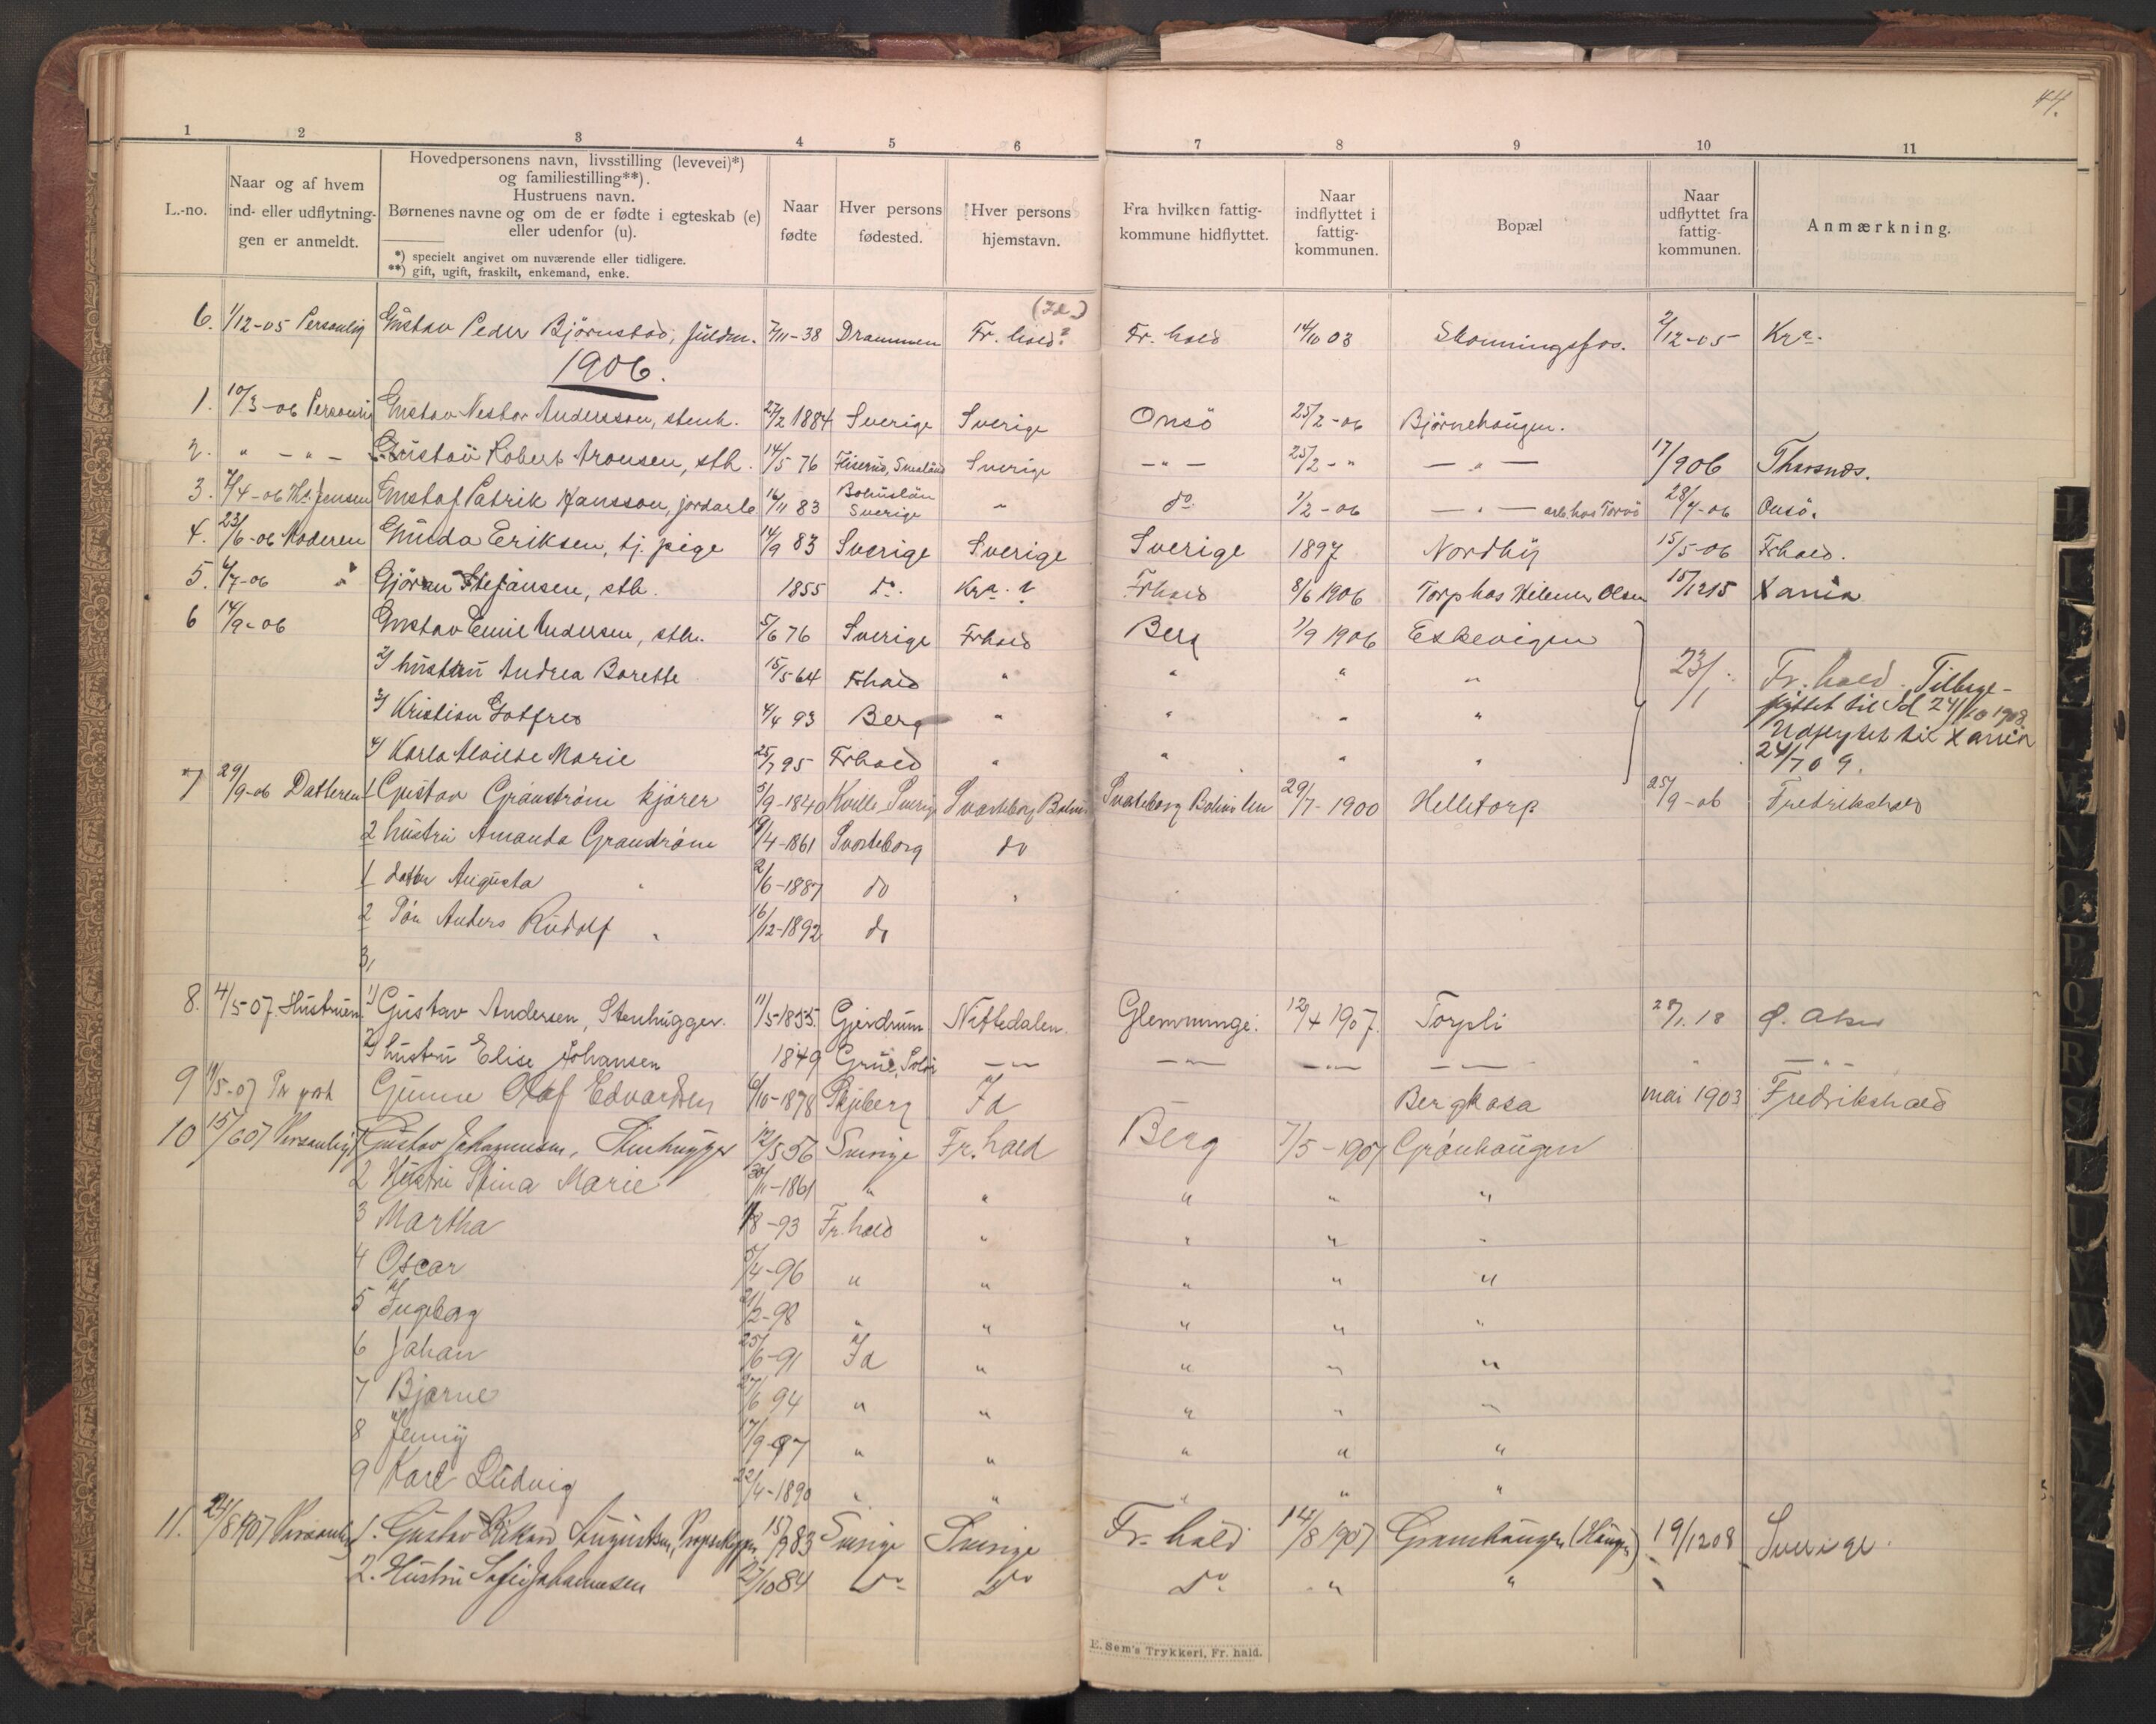 44.
1 2 3 4 5 6 7 8 9 10 11
L.-no.
Naar og af hvem
ind- eller udflytnin-
gen er anmeldt.
Hovedpersonens navn, livsstilling (levevei)*)
og familiestilling**).
Hustruens navn.
Børnenes navne og om de er fødte i egteskab (e)
eller udenfor (u).
*) specielt angivet om nuværende eller tidligere.
**) gift, ugift, fraskilt, enkemand, enke.
Naar
fødte
Hver persons
fødested.
Hver persons
hjemstavn.
Fra hvilken fattig-
kommune hidflyttet.
Naar
indflyttet i
fattig-
kommunen.
Bopæl
Naar
udflyttet fra
fattig-
kommunen.
Anmærkning.
(Id.)
6. 1/12-05 Personlig Gustav Peder Bjørnstad, 7/11-38 Drammen Fr. hald? Fr. hald 14/10 03 Skonningsfos. 2/12-05 Kra.
1906.
1. 10/3-06 Personlig Gustav Nestor Andersson, stenh. 27/2 1884 Sverige Sverige Onsö 25/2-06 Björnehaugen.
2. " - " - Gustav Robert Aronsen, sth. 14/5 76 Fliserud, Småland Sverige - " - 25/2 - " - " - 17/9 06 Thorsnæs.
3. 7/4-06 Jensen Gustaf Patrik Hansson, jordarb. 16/11 83 Bohuslän Sverige " do 1/2-06 - " - arb. hos Torvö 28/4-06 Onsö.
4. 23/6-06 Moderen Gunda Eriksen, tj. pige 14/9 83 Sverige Sverige Sverige 1897 Nordby 15/5-06 Frhald.
5. 6/7-06 " Gjöran Stefansen, sth. 1855 do. Kra. ? Frhald 8/6 1906 Torp hos Helmer Olsen 15/12 15 Xania
6 14/9-06 Gustav Emil Andersen, sth. 5/6 76 Sverige Frhald Berg 1/9 1906 Eskevigen
2) hustru Andrea Borette 15/5 64 Frhald " " " " 23/1 Fr. hald. Tilbage-
3) Kristian Gotfred 4/4 93 Berg " " " " flyttet til Id 24/10 1908.
Udflyttet til Xania
4) Karla Alvilde Marie 25/7 95 Frhald " " " " 24/7 09.
7 29/9-06 Datteren 1 Gustav Granström kjører 5/9-1840 Kville, Sverig Svarteborg Bohus Svarteborg Bohuslen 29/7-1900 Helletorp 25/9-06 Fredrikshald
2 hustru Amanda Granström 19/4-1861 Svarteborg do
1 datter Augusta " 2/6-1887 do "
2 Søn Anders Rudolf " 16/12-1892 do
3,
8. 4/5-07 Hustruen 1) Gustav Andersen, Stenhugger. 11/5-1855 Gjerdrum Nittedalen. Glemminge. 12/4 1907. Torpli 28/1.18 Ø. Aker
2) hustru Elise Johansen 1849 Grue, Solør - " - - " - - " - - " - " - " -
9 14/5-07 Pr post Gunne Olaf Edvardsen 6/10-1878 Skjeberg Id Bergkasa mai 1903 Fredrikshald
10 15/6 07 Personlig 1 Gustav Johannesen, Stenhugger 12/5 56 Sverige Fr. hald Berg 7/5-1907 Grönhaugen
2 Hustru Stina Marie 30/11-1861 " " " " "
3 Martha 1/8-93 Fr. hald " " " "
4 Oscar 5/4-96 " " " " "
5 Ingeborg 21/2-98 " " " " "
6 Johan 25/6-91 Id " " " "
7 Bjarne 27/6 94 " " " " "
8 Jenny 17/9-97 " " " " "
9 Karl Ludvig 22/4-1890 " " " " "
11. 24/8 1907 Personlig 1. Gustav Rikard Augustsen, 15/9 83 Sverige Sverige Fr. hald 14/8 1907 Grønhaugen (Haugen) 19/12 08 Sverige
2. Hustru Sofie Johannesen 27/10 84 do do do " "
E. Sem's Trykkeri, Fr. hald.